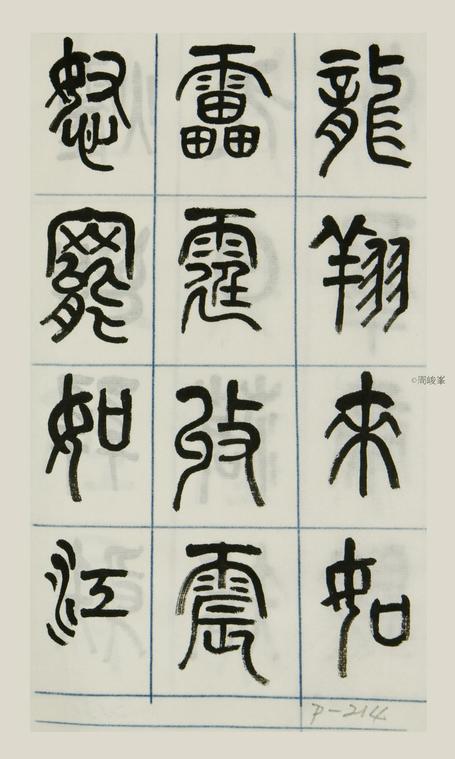 龍翔來如
靁霆收震
怒罷如江
P-214
©周峻峯